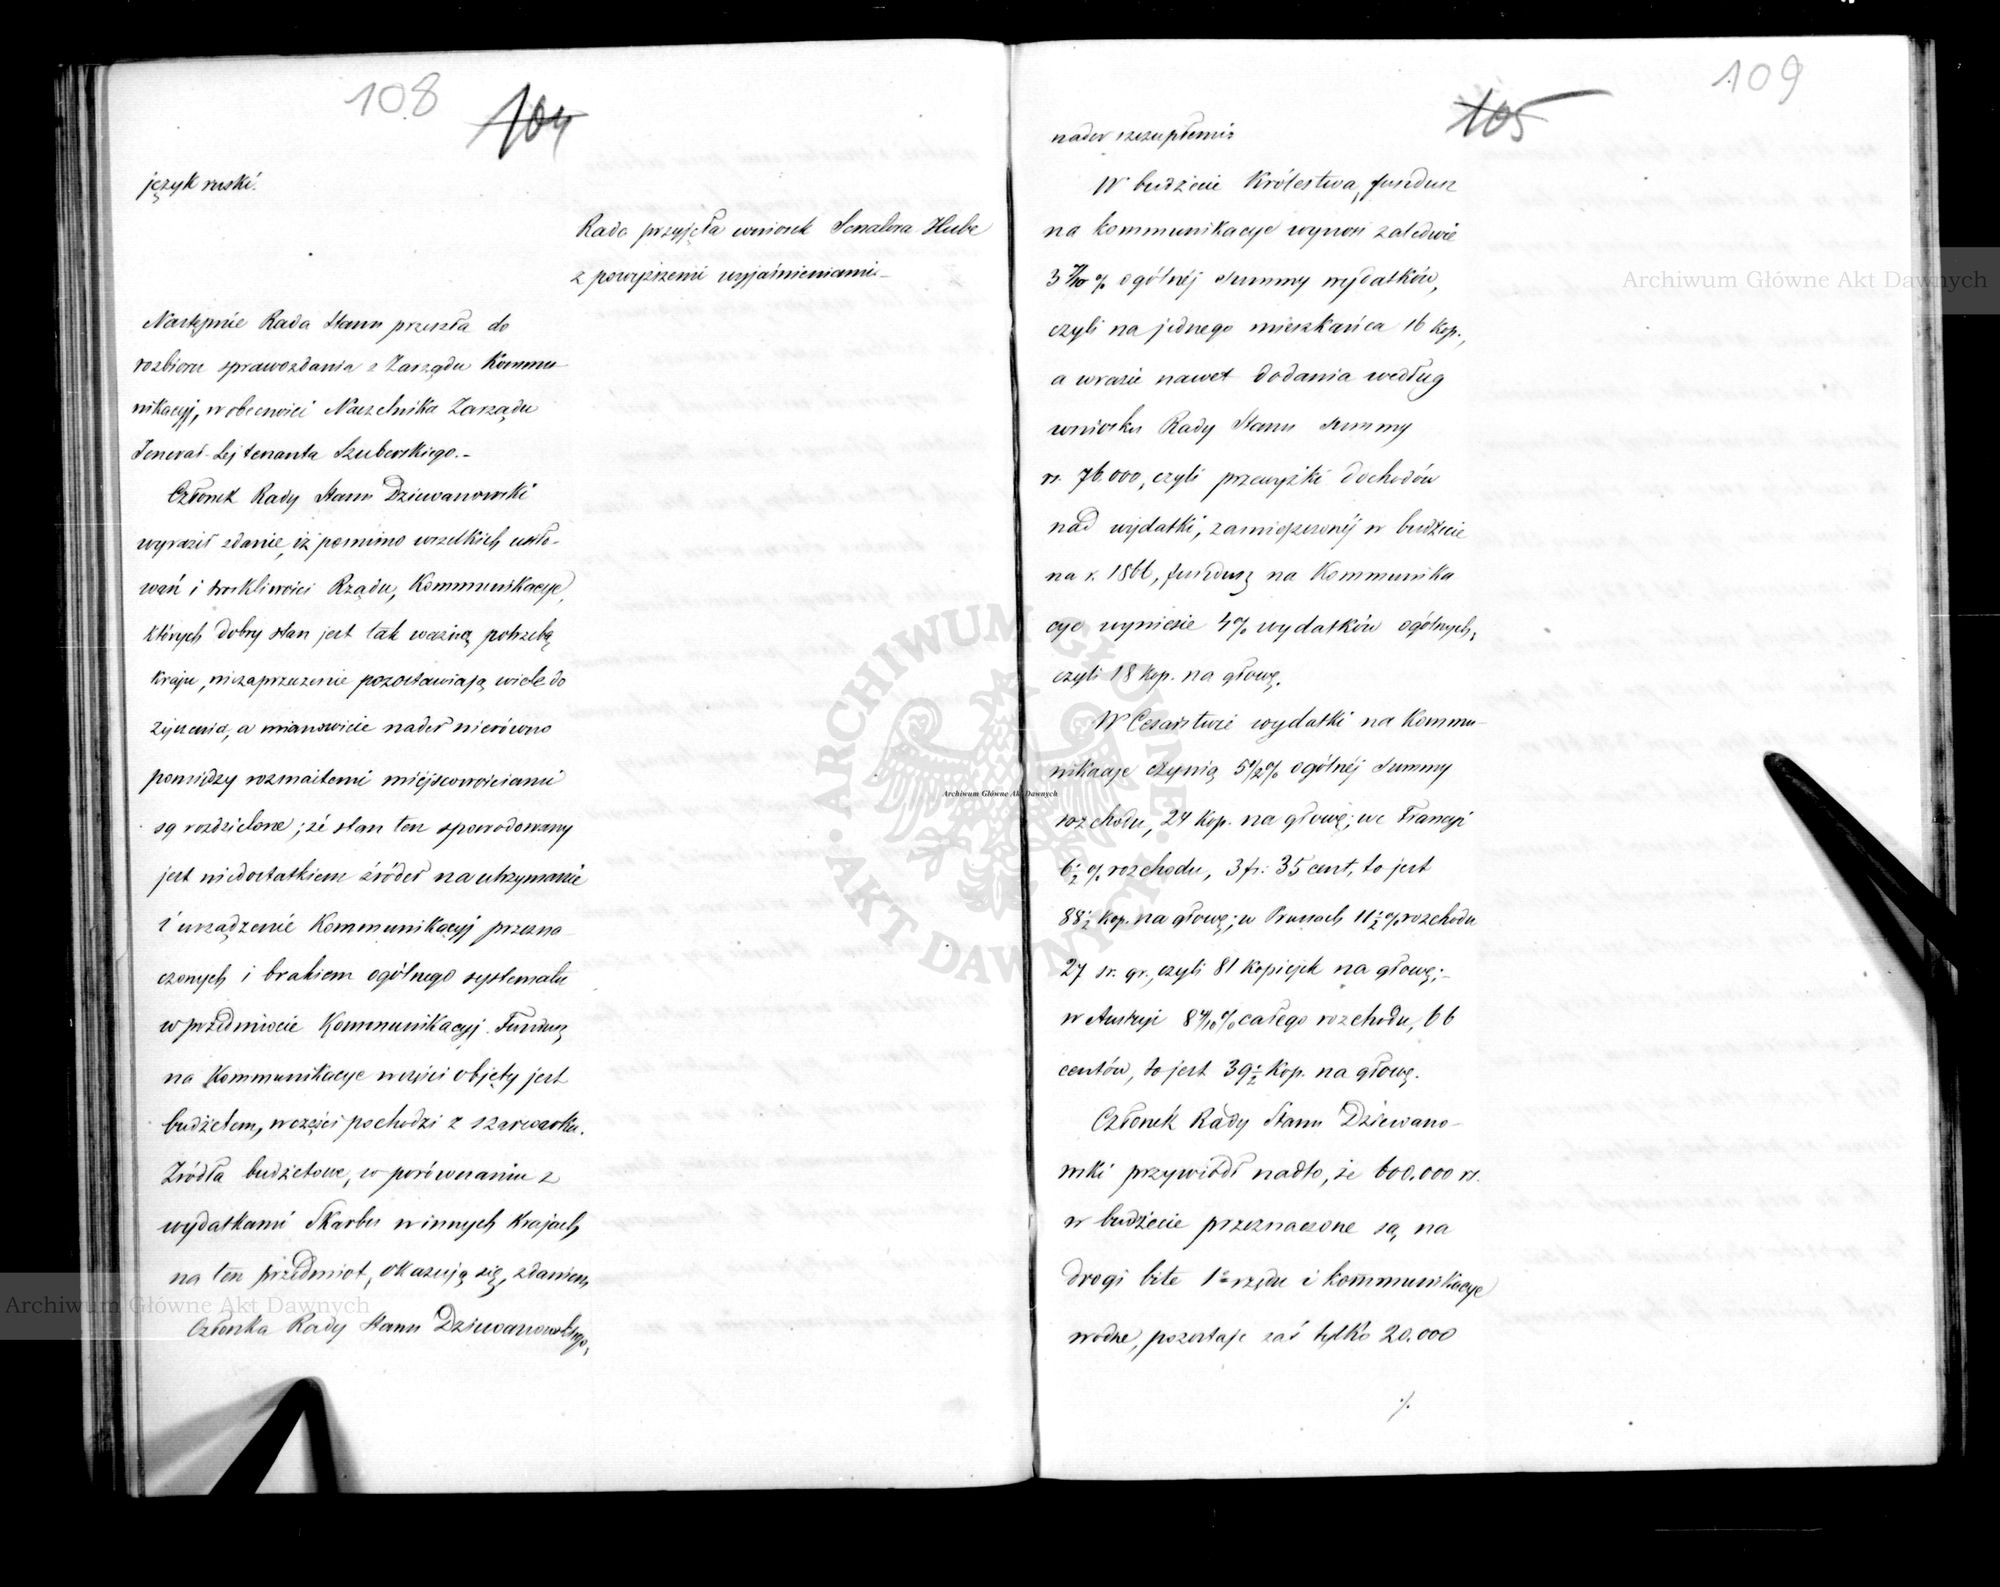 108
104
język ruski.
Rada przyjęła wniosek Senatora Hube
z powyższemi wyjaśnieniami.–
Następnie Rada Stanu przeszła do
rozbioru sprawozdania z Zarządu Kommu-
nikacyj, w obecności Naczelnika Zarządu
Jenerał-Lejtenanta Szuberskiego.–
Członek Rady Stanu Dziewanowski
wyraził zdanie, iż pomimo wszelkich usiło-
wań i troskliwości Rządu, Kommunikacye,
których dobry stan jest tak ważną potrzebą
kraju, niezaprzeczenie pozostawiają wiele do
życzenia, a mianowicie nader nierówno
pomiędzy rozmaitemi miejscowościami
są rozdzielone; że stan ten spowodowany
jest niedostatkiem źródeł na utrzymanie
i urządzenie Kommunikacyj przezna-
czonych i brakiem ogólnego systematu
w przedmiocie Kommunikacyj. Fundusz
na Kommunikacye w części objęty jest
budżetem, w części pochodzi z szarwarku.
Źródła budżetowe, w porównaniu z
wydatkami Skarbu w innych krajach
na ten przedmiot, okazują się, zdaniem
Członka Rady Stanu Dziewanowskiego,
109
105
nader szczupłemi:
W budżecie Królestwa, fundusz
na kommunikacye wynosi zaledwie
3 7/10 % ogólnéj summy wydatków,
czyli na jednego mieszkańca 16 kop.,
a w razie nawet dodania według
wniosku Rady Stanu summy
rs. 76.000, czyli przewyżki dochodów
nad wydatki, zamieszczonéj w budżecie
na r. 1866, fundusz na Kommunika
cye wyniesie 4% wydatków ogólnych,
czyli 18 kop. na głowę.
W Cesarstwie wydatki na Kommu-
nikacje czynią 5 1/2 % ogólnéj summy
rozchodu, 24 kop. na głowę; we Francyi
6 1/2 % rozchodu, 3 fr: 35 cent, to jest
88 1/2 kop. na głowę; w Prusach 11 1/2 % rozchodu
27 sr. gr., czyli 81 kopiejek na głowę;–
w Austryi 8 4/10 % całego rozchodu, 66
centów, to jest 39 1/2 kop. na głowę.
Członek Rady Stanu Dziewano-
wski przywiódł nadto, że 600.000 rs.
w budżecie przeznaczone są na
drogi bite 1o rzędu i kommunikacye
wodne, pozostaje zaś tylko 20.000
./.
Archiwum Główne Akt Dawnych
Archiwum Główne Akt Dawnych
Archiwum Główne Akt Dawnych
ARCHIWUM GŁÓWNE AKT DAWNYCH